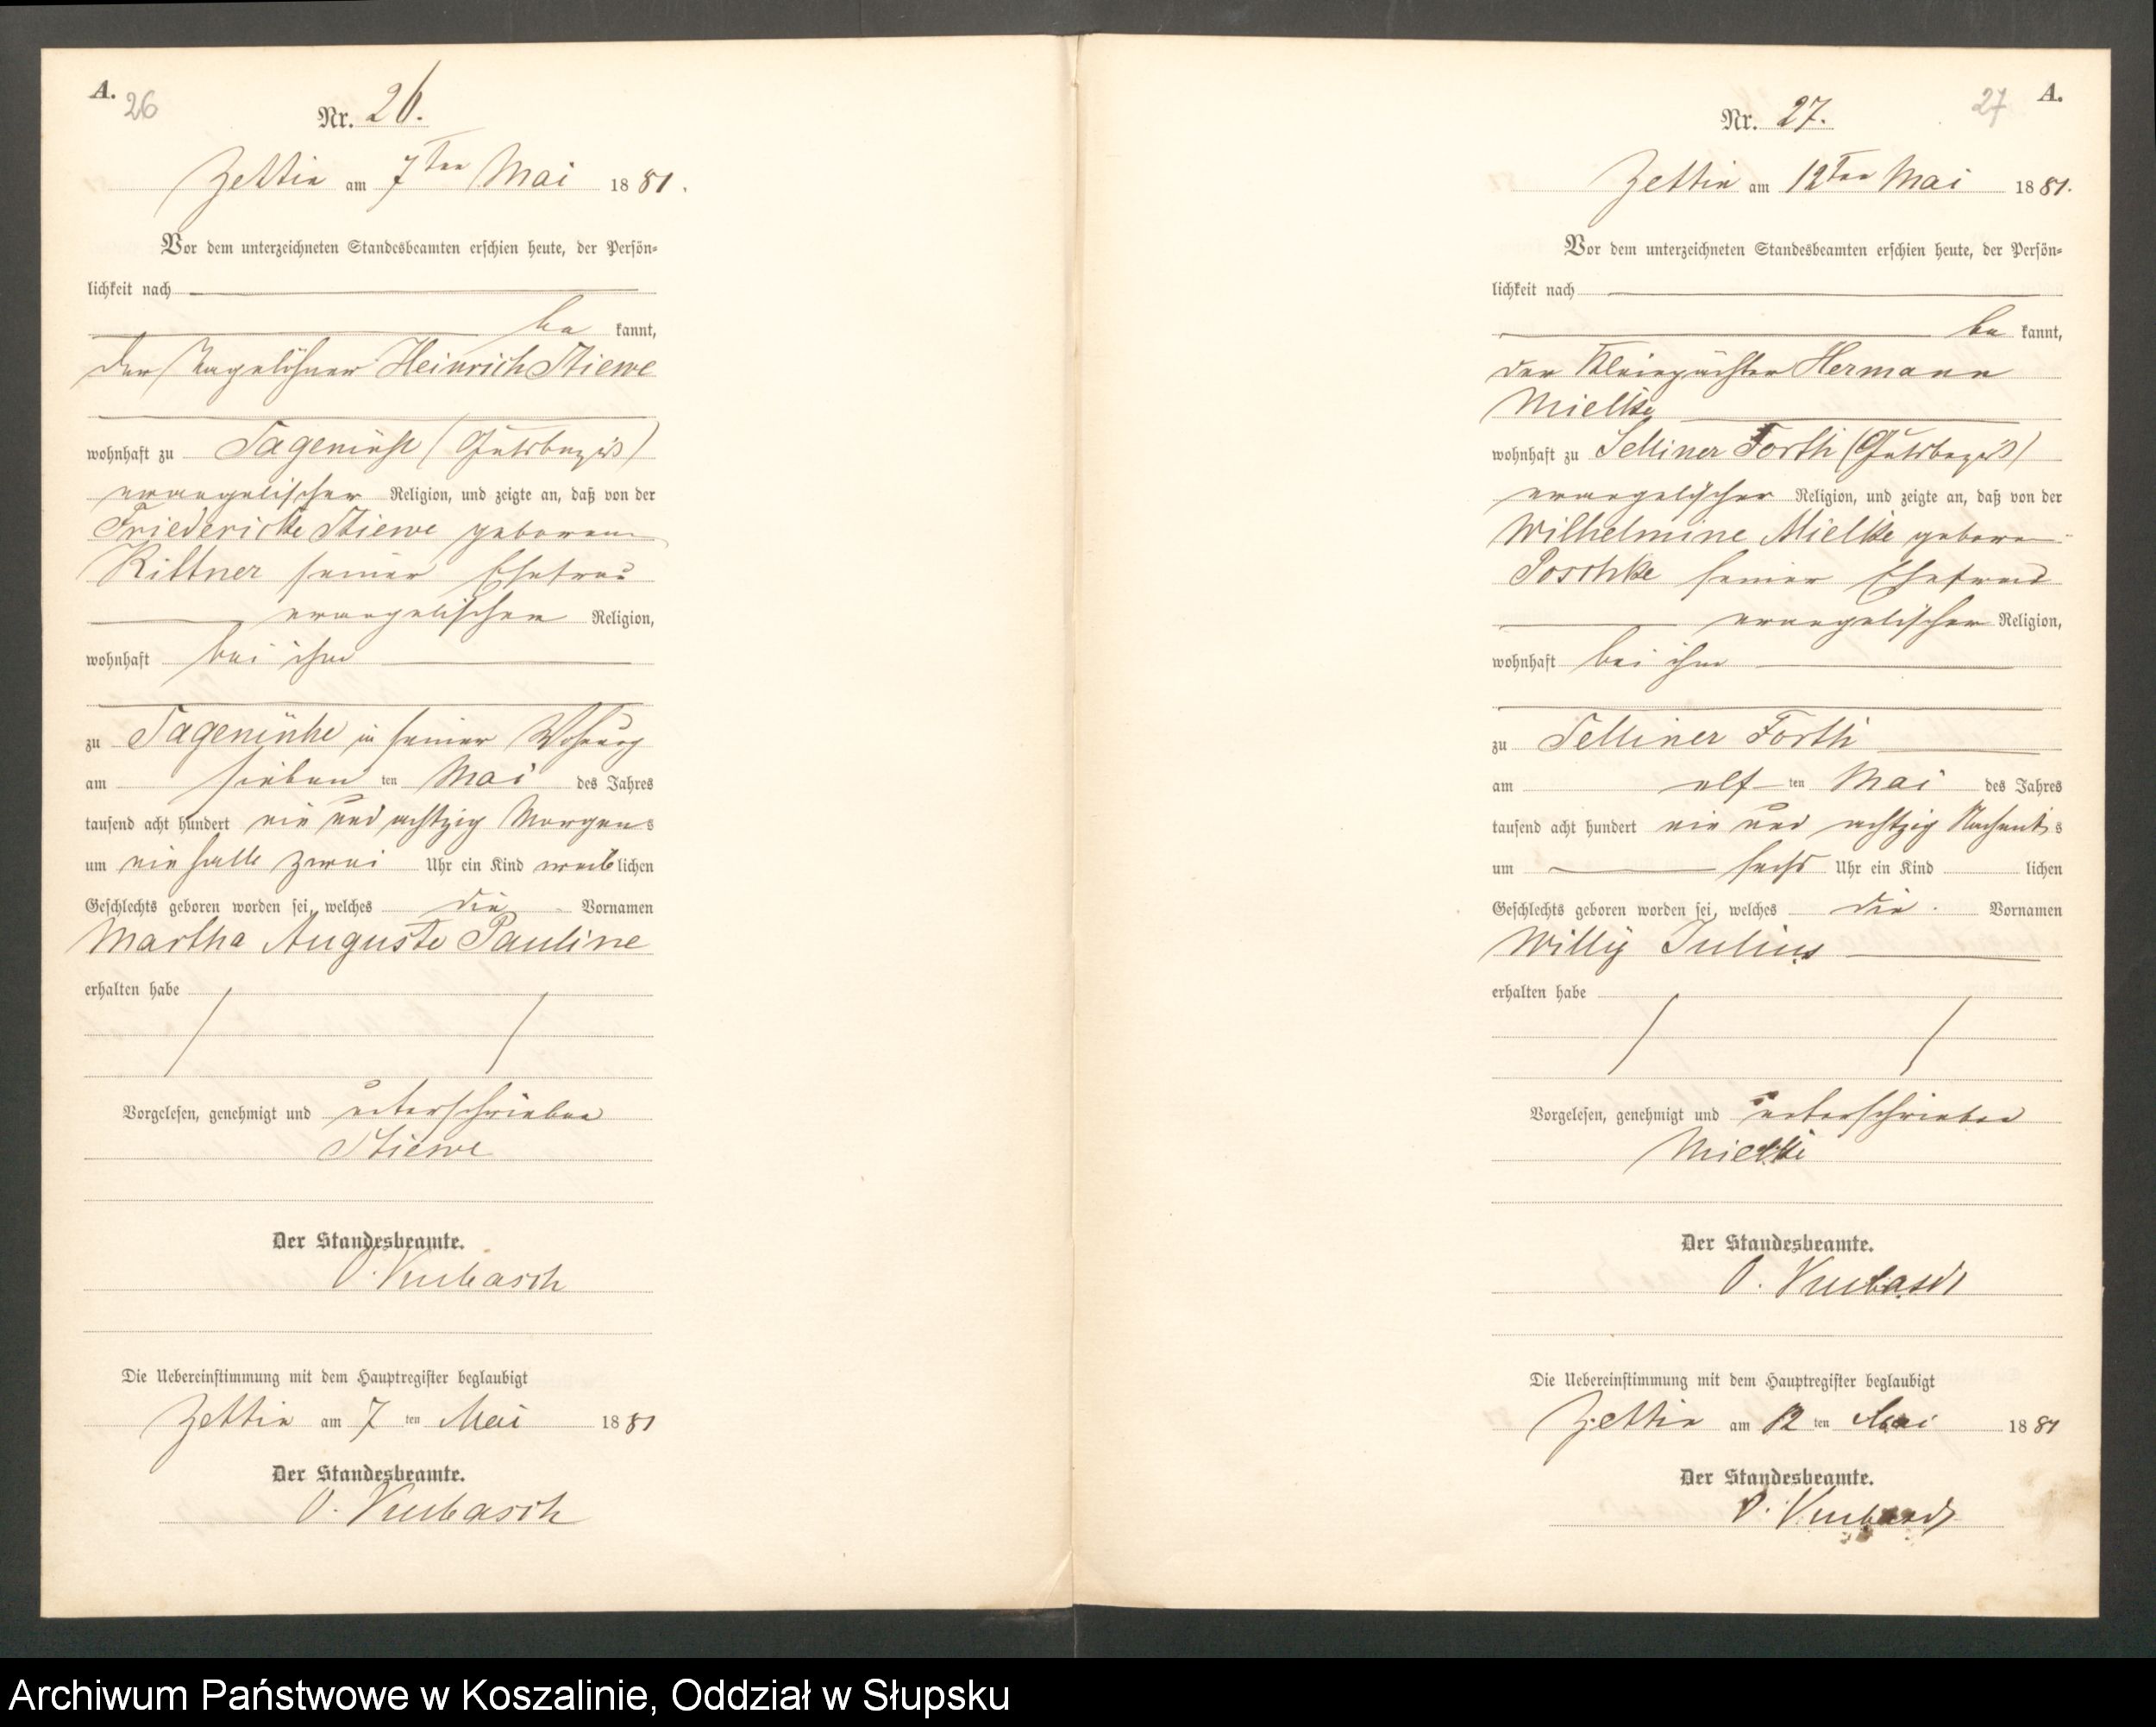 A.
26
Nr. 26.
Zettin am 7ten Mai 1881.
Vor dem unterzeichneten Standesbeamten erschien heute, der Persön-
lichkeit nach
be kannt,
der Tagelöhner Heinrich Stiewe
wohnhaft zu (Gutsbezirk)
evangelischer Religion, und zeigte an, daß von der
Friedericke Stiewe geborene
Kittner seiner Ehefrau
evangelischer Religion,
wohnhaft bei ihm
zu in seiner Wohnung
am sieben ten Mai des Jahres
tausend acht hundert ein und achtzig Morgens
um ein halb zwei Uhr ein Kind weiblichen
Geschlechts geboren worden sei, welches die Vornamen
Martha Auguste Pauline
erhalten habe
Vorgelesen, genehmigt und unterschrieben
Stiewe
Der Standesbeamte.
O.
Die Uebereinstimmung mit dem Hauptregister beglaubigt
Zettin am 7 ten Mai 1881
Der Standesbeamte.
O.
27
A.
Nr. 27.
Zettin am 12ten Mai 1881.
Vor dem unterzeichneten Standesbeamten erschien heute, der Persön-
lichkeit nach
be kannt,
der Kleinpächter Hermann
Mielke
wohnhaft zu Forth (Gutsbezirk)
evangelischer Religion, und zeigte an, daß von der
Wilhelmine Mielke geborene
Poschke seiner Ehefrau
evangelischer Religion,
wohnhaft bei ihm
zu Forth
am elf ten Mai des Jahres
tausend acht hundert ein und achtzig Nachmit s
um sechs Uhr ein Kind lichen
Geschlechts geboren worden sei, welches die Vornamen
Willy Julius
erhalten habe
Vorgelesen, genehmigt und unterschrieben
Mielke
Der Standesbeamte.
O.
Die Uebereinstimmung mit dem Hauptregister beglaubigt
Zettin am 12 ten Mai 1881
Der Standesbeamte.
O.
Archiwum Państwowe w Koszalinie, Oddział w Słupsku